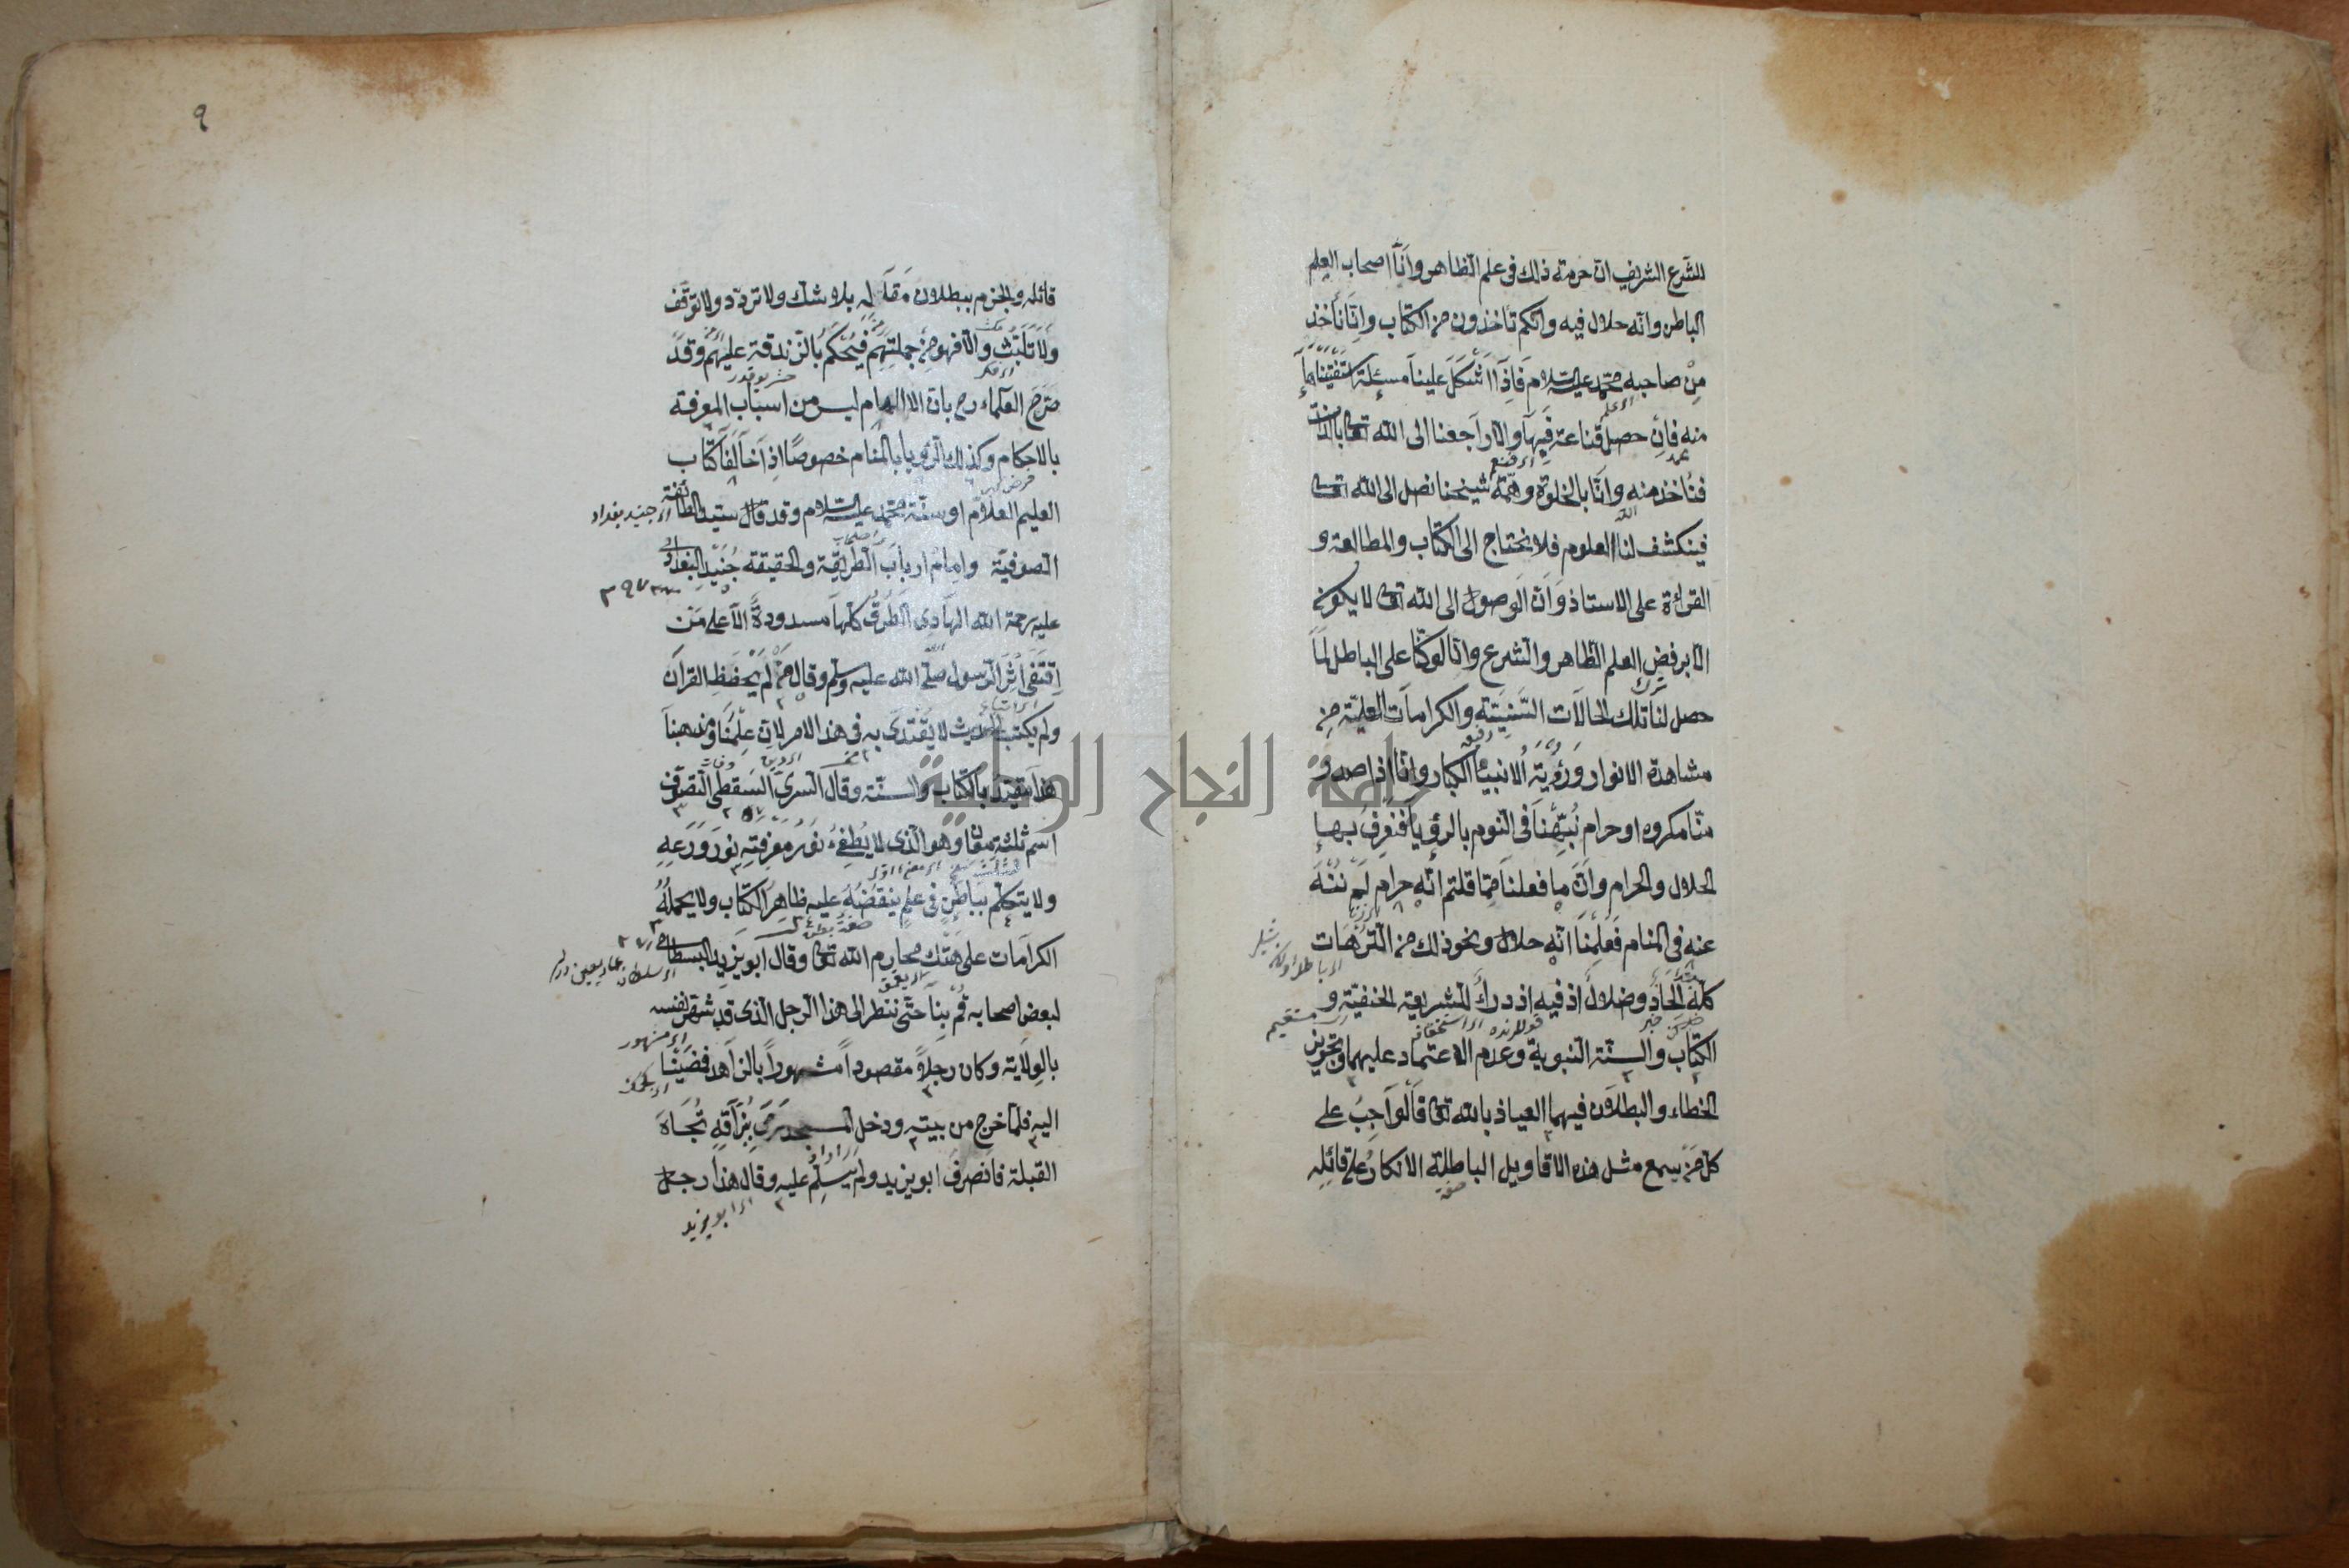 للشرع الشريف ان حرمة ذلك فى علم الظاهر وانا اصحاب العلم
الباطن وانه حلال فيه وانكم تأخذون من الكتاب وانا نأخذ
من صاحبه محمد عليه السلام فاذا اشكل علينا مسئلة استفتيناها
منه فان حصل قناعة فيها والا راجعنا الى الله تعالى بالذات
فنأخذ منه وانا بالخلوة وهمة شيخنا نصل الى الله تعالى
فينكشف لنا العلوم فلا نحتاج الى الكتاب والمطالعة و
القراءة على الاستاذ وان الوصول الى الله تعالى لا يكون
الا برفض العلم الظاهر والشرع وانا لو كنا على الباطل لما
حصل لنا تلك الحالات السنية والكرامات العلية من
مشاهدة الانوار ورؤية الانبياء الكبار وانا اذا صدر
منا مكروه او حرام نبهنا فى النوم بالرؤيا فنعرف بها
الحلال والحرام وان ما فعلنا مما قلتم انه حرام لم ننه
عنه فى المنام فعلمنا انه حلال ونحو ذلك من الترهات
كله الحاد وضلال اذ فيه ازدراء للشريعة الحنفية و
الكتاب والسنة النبوية وعدم الاعتماد عليهما وتجويز
الخطاء والبطلان فيهما العياذ بالله تعالى فالواجب على
كل من يسمع مثل هذه الاقاويل الباطلة الانكار على قائله
٩
قائله والجزم ببطلان مقاله بلا شك ولا تردد ولا توقف
ولا تلبث والا فهو من جملتهم فيحكم بالزندقة عليهم وقد
صرح العلماء رح بان الالهام ليس من اسباب المعرفة
بالاحكام وكذلك الرؤيا بالمنام خصوصا اذا خالفا كتاب
العليم العلام او سنة محمد عليه السلام وقد قال سيد الطائفة
الصوفية وامام ارباب الطريقة والحقيقة جنيد البغدادى
عليه رحمة الله الهادى الطرق كلها مسدودة الا على من
اقتفى اثر الرسول صلى الله عليه وسلم وقال من لم يحفظ القرآن
ولم يكتب الحديث لا يقتدى به فى هذا الامر لان علمنا ومذهبنا
هذا مقيد بالكتاب والسنة وقال السرى السقطى التصوف
اسم لثلثة معان وهو الذى لا يطفئ نور معرفته نور ورعه
ولا يتكلم بباطن فى علم ينقضه عليه ظاهر الكتاب ولا يحمله
الكرامات على هتك محارم الله تعالى وقال ابو يزيد البسطامى
لبعض اصحابه قم بنا حتى ننظر الى هذا الرجل الذى قد شهر نفسه
بالولاية وكان رجلا مقصودا مشهورا بالزهد فمضينا
اليه فلما خرج من بيته ودخل المسجد رمى بزاقه تجاه
القبلة فانصرف ابو يزيد ولم يسلم عليه وقال هذا رجل